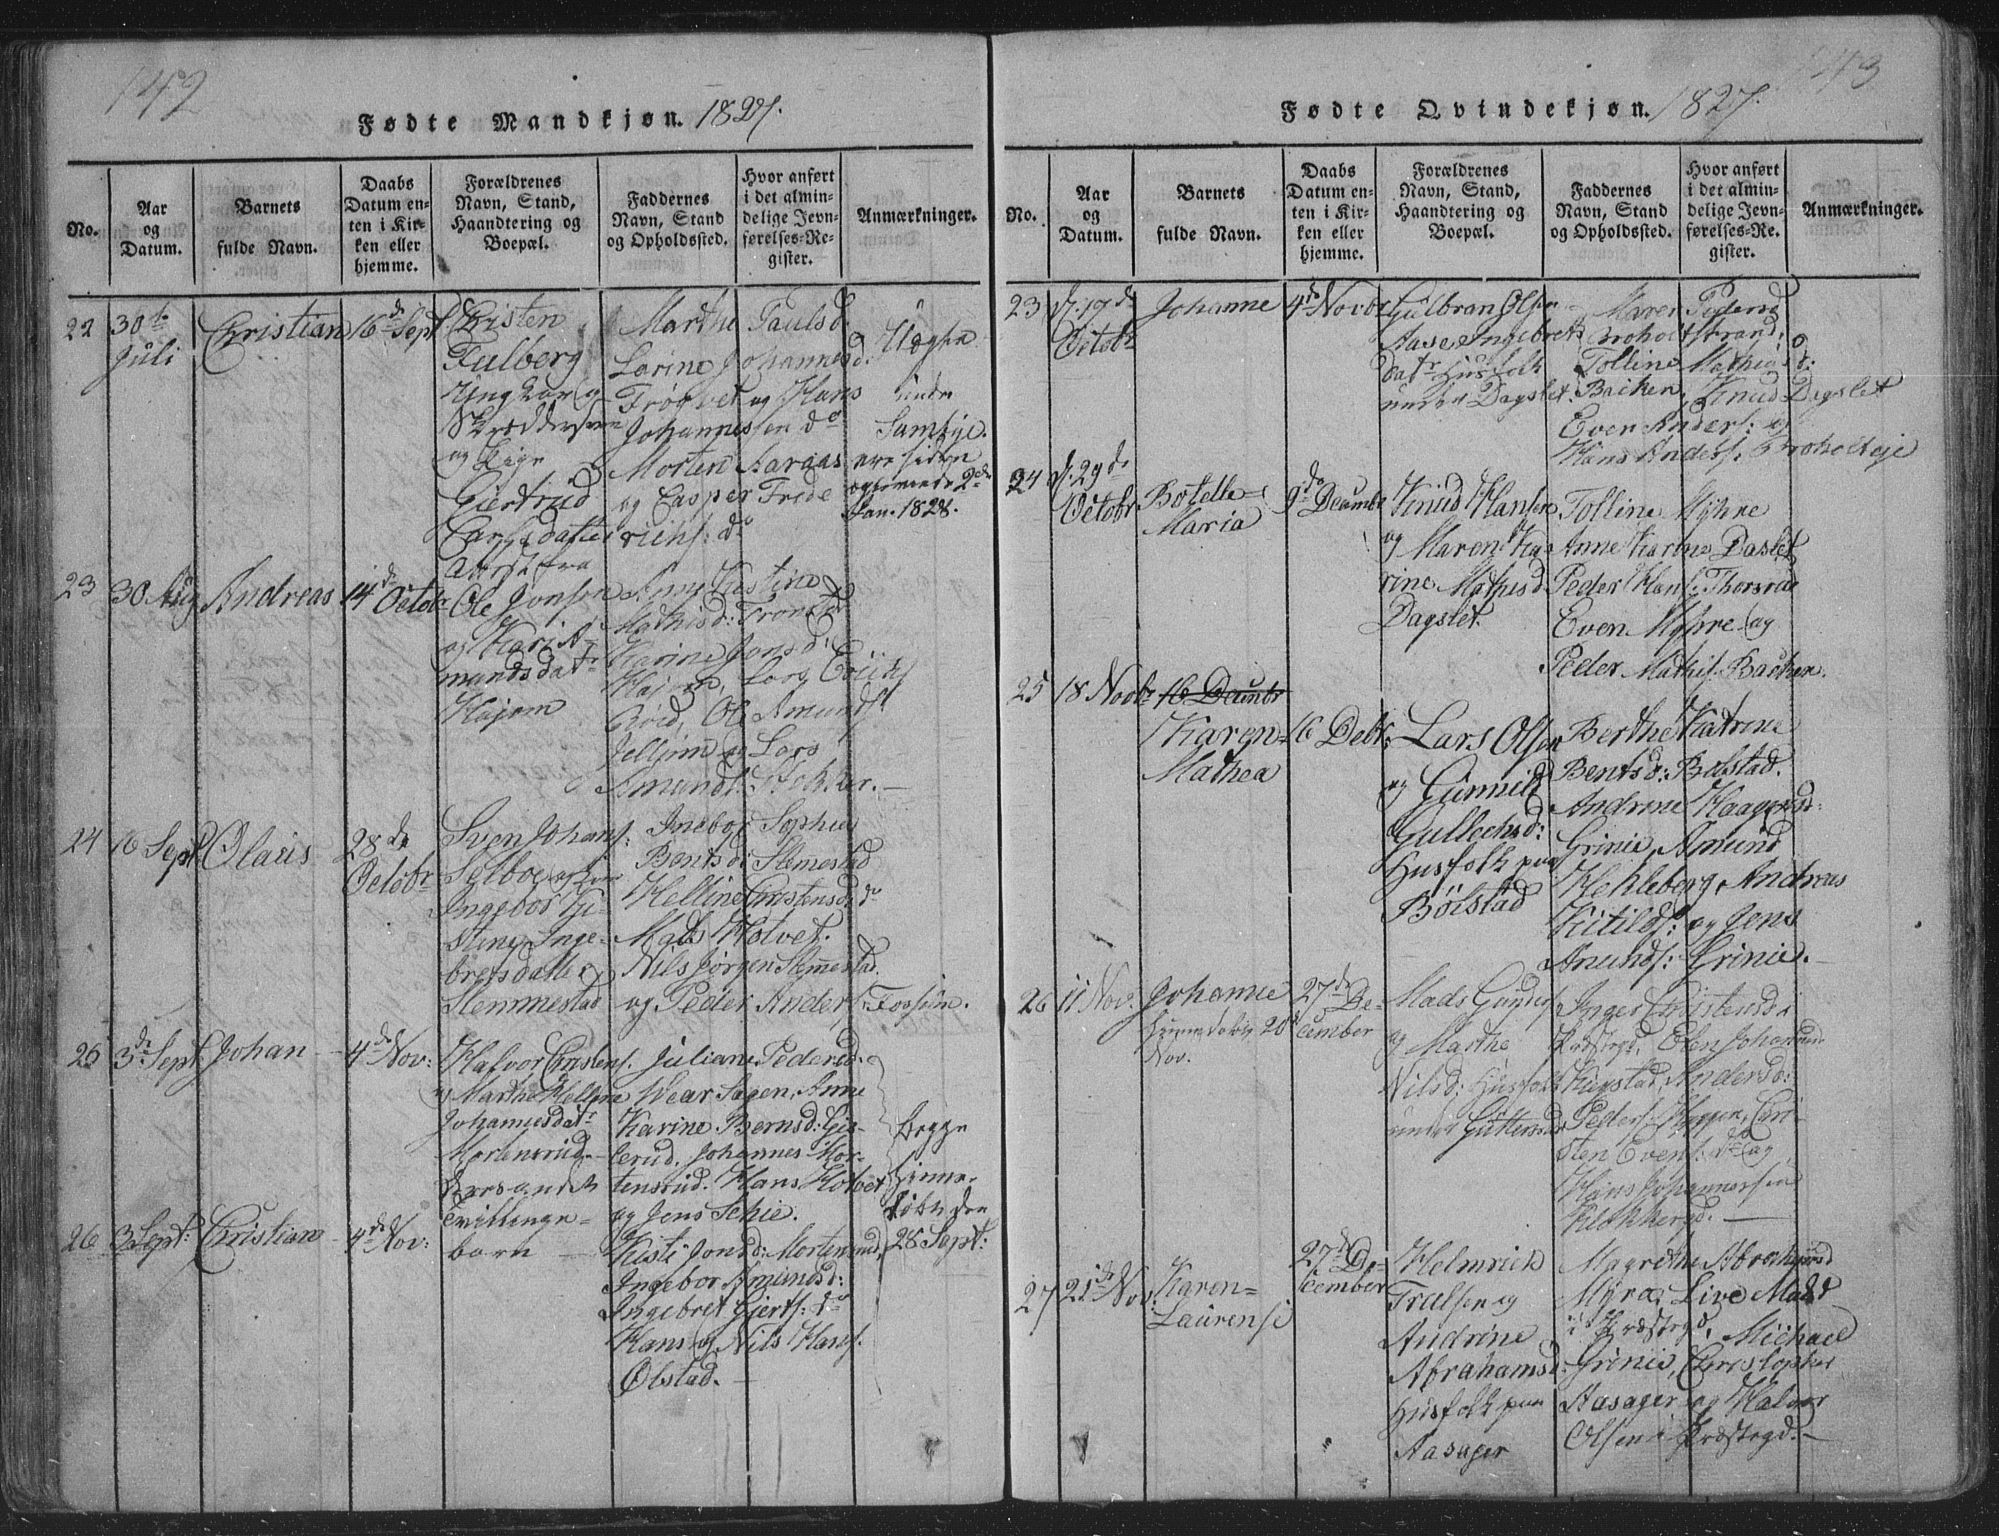 142
Fødte Mandkjøn. 1827.
No.
Aar
og
Datum.
Barnets
fulde Navn.
Daabs
Datum en-
ten i Kir-
ken eller
hjemme.
Forældrenes
Navn, Stand,
Haandtering og
Boepæl.
Faddernes
Navn, Stand
og Opholdssted.
Hvor anført
i det almin-
delige Jevn-
førelses-Re-
gister.
Anmærkninger.
22
30te
Juli
Christian
16de Sept.
Christen
Fulberg
Ungkar og
Skrædder
og Pige
Giertrud
Carlsdatter
Marthe Paulsd.
Larine Johannesd.
Frøgvet og Hans
Johannessen do
Morten Aaraas
og Casper Frede
richs: do
Uægte
Jan. 1828.
23
30 Aug
Andreas
14de Octobr
Ole Jonsen
og Kari A-
mandsdatr
Højem
Mathisd:
Karine Jonsd.
Højem, Lars Erichs
Ole Amunds
og Lars
Amunds: Stokker.
24
16 Sept
Olaus
28de
Octobr
Sven Johans:
Selboe og
Ingebor Ki-
stine Inge-
bregsdatter
Stemmestad
Ingebor Sophie
Bentsd: Stemestad
Helline Christensd: do
Mads Holvet.
Nils Jørgen Stemestad.
og Peder Anders: Fossum.
25
3de Sept.
Johan
4de Nov:
Halvor Christens.
og Marthe Helljne
Johannesdatr
Mortensrud
Tvillinge-
børn
Juliane Pedersd:
Wear Sagen, Anne
Karine Bernsd: Gis-
lerud, Johannes Mor-
tensrud. Hans Holvet
og Jens Schie.
Begge
hjemme-
døbte den
28 Sept:
26
3 Sept:
Christian
4de Nov:
Kisti Jonsd: Mortensrud,
Ingebor Amundsd:
Ingebret Gjerts: do
Hans og Nils Hans:
Ølstad.
143
Fødte Qvindekjøn. 1827.
No.
Aar
og
Datum.
Barnets
fulde Navn.
Daabs
Datum en-
ten i Kir-
ken eller
hjemme.
Forældrenes
Navn, Stand,
Haandtering og
Boepæl.
Faddernes
Navn, Stand
og Opholdssted.
Hvor anført
i det almin-
delige Jevn-
førelses-Re-
gister.
Anmærkninger.
23
d. 19de
Octobr
Johanne
4de Novbr
Gulbran Olsen
Aase Ingebrets
datr Husfolk
under Dagslet.
Maren Pedersd
Broholtstrand;
Tolline Mathiasd:
Backen, Knud Dagslet
Even Anders: og
Hans Anders: Broholteje
24
d. 29de
Octobr
Botelle
Maria
9de Decembr
Knud Hansen
og Maren Ka-
rine Mathisd
Dagslet.
Tolline Myhre
Anne Karine Daslet
Peder Hans: Thorsrud
Even Myhre og
Peder Mathis: Backen.
25
18 Novbr
16 Decembr
Karen
Mathea
16 Debr:
Lars Olsen
og Gunnild
Gullechsd:
Husfolk paa
Bölstad
Berthe Katrine
Bentsd: Bölstad.
Andrine Haagensd:
Grinie, Amund
Kehleberg, Andreas
Kitilds: og Jens
Amunds: Grinie.
26
11 Nov:
Johanne
hjemmedøbt 20de
Nov.
27de De-
cember
Mads Gunders
og Marthe
Nilsd: Husfolk
under Guttersrud
Inger Christensd:
Præstegd, Elen Johannsd
Kiepstad, Andersd:
Peders: Heggen, Chri-
sten Evens: do og
Hans Johannessen
Klokkergd.
27
21de Nov:
Karen
Laurense
27de De-
cember
Helmrich
Trulsen og
Andrine
Abrahamsd:
Husfolk paa
Aasager
Magrethe Abrahamsd
Myra, Live Madsd
i Præstegd, Michael
Grinie, Christopher
Aasager og Halvor
Olsen i Præstegd.